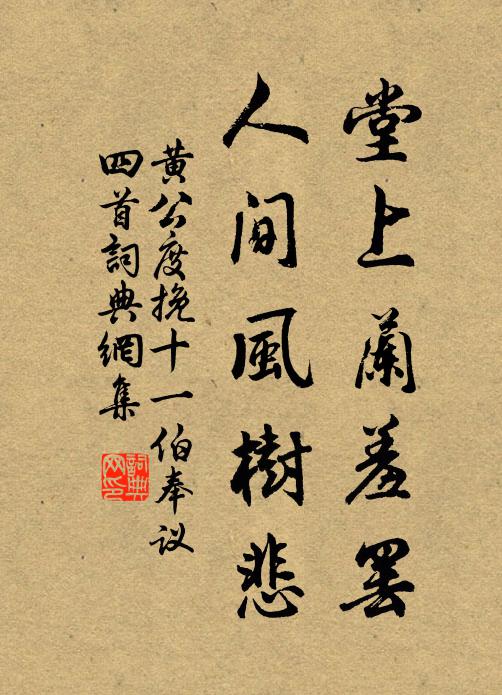 堂上蘭羞罷
人间風樹悲
黄公度挽十一伯奉议
四首詞典網集
詞典
网印